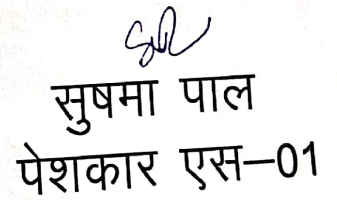 सुषमा पाल
पेशकार एस–01